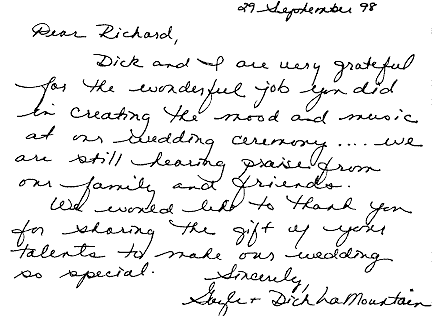 29 September 98
Dear Richard,
Dick and I are very grateful
for the wonderful job you did
in creating the mood and music
at our wedding ceremony .... we
are still hearing praise from
our family and friends.
We would like to thank you
for sharing the gift of your
talents to make our wedding
so special.
Sincerely,
Gayle + Dick LaMountain